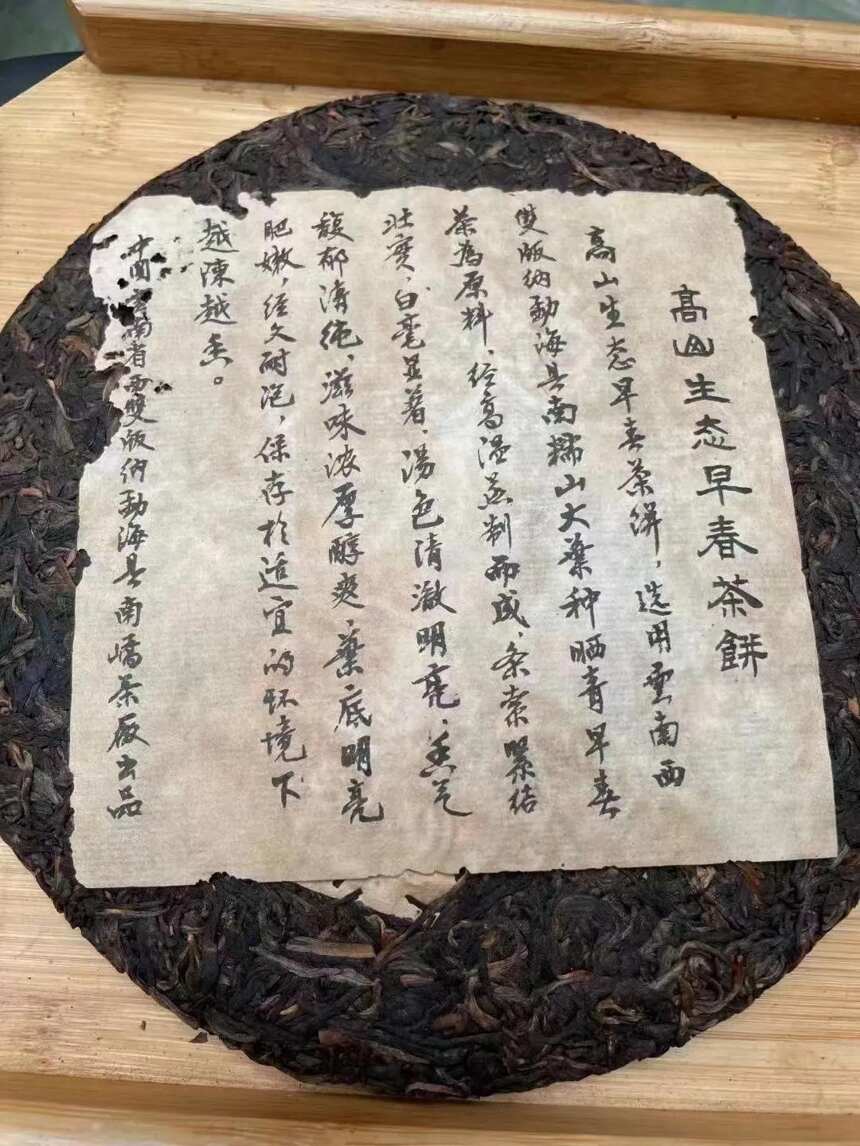 高山生态早春茶餅
高山生态早春茶餅，选用雲南西
雙版纳勐海县南糯山大葉种晒青早春
茶為原料，经高温蒸制而成，条索緊结
壮实，白毫显著，湯色清澈明亮，香气
馥郁清纯，滋味浓厚醇爽，葉底明亮
肥嫩，经久耐泡，保存于适宜的环境下
越陳越香。
中国雲南省西雙版纳勐海县南嶠茶厰出品